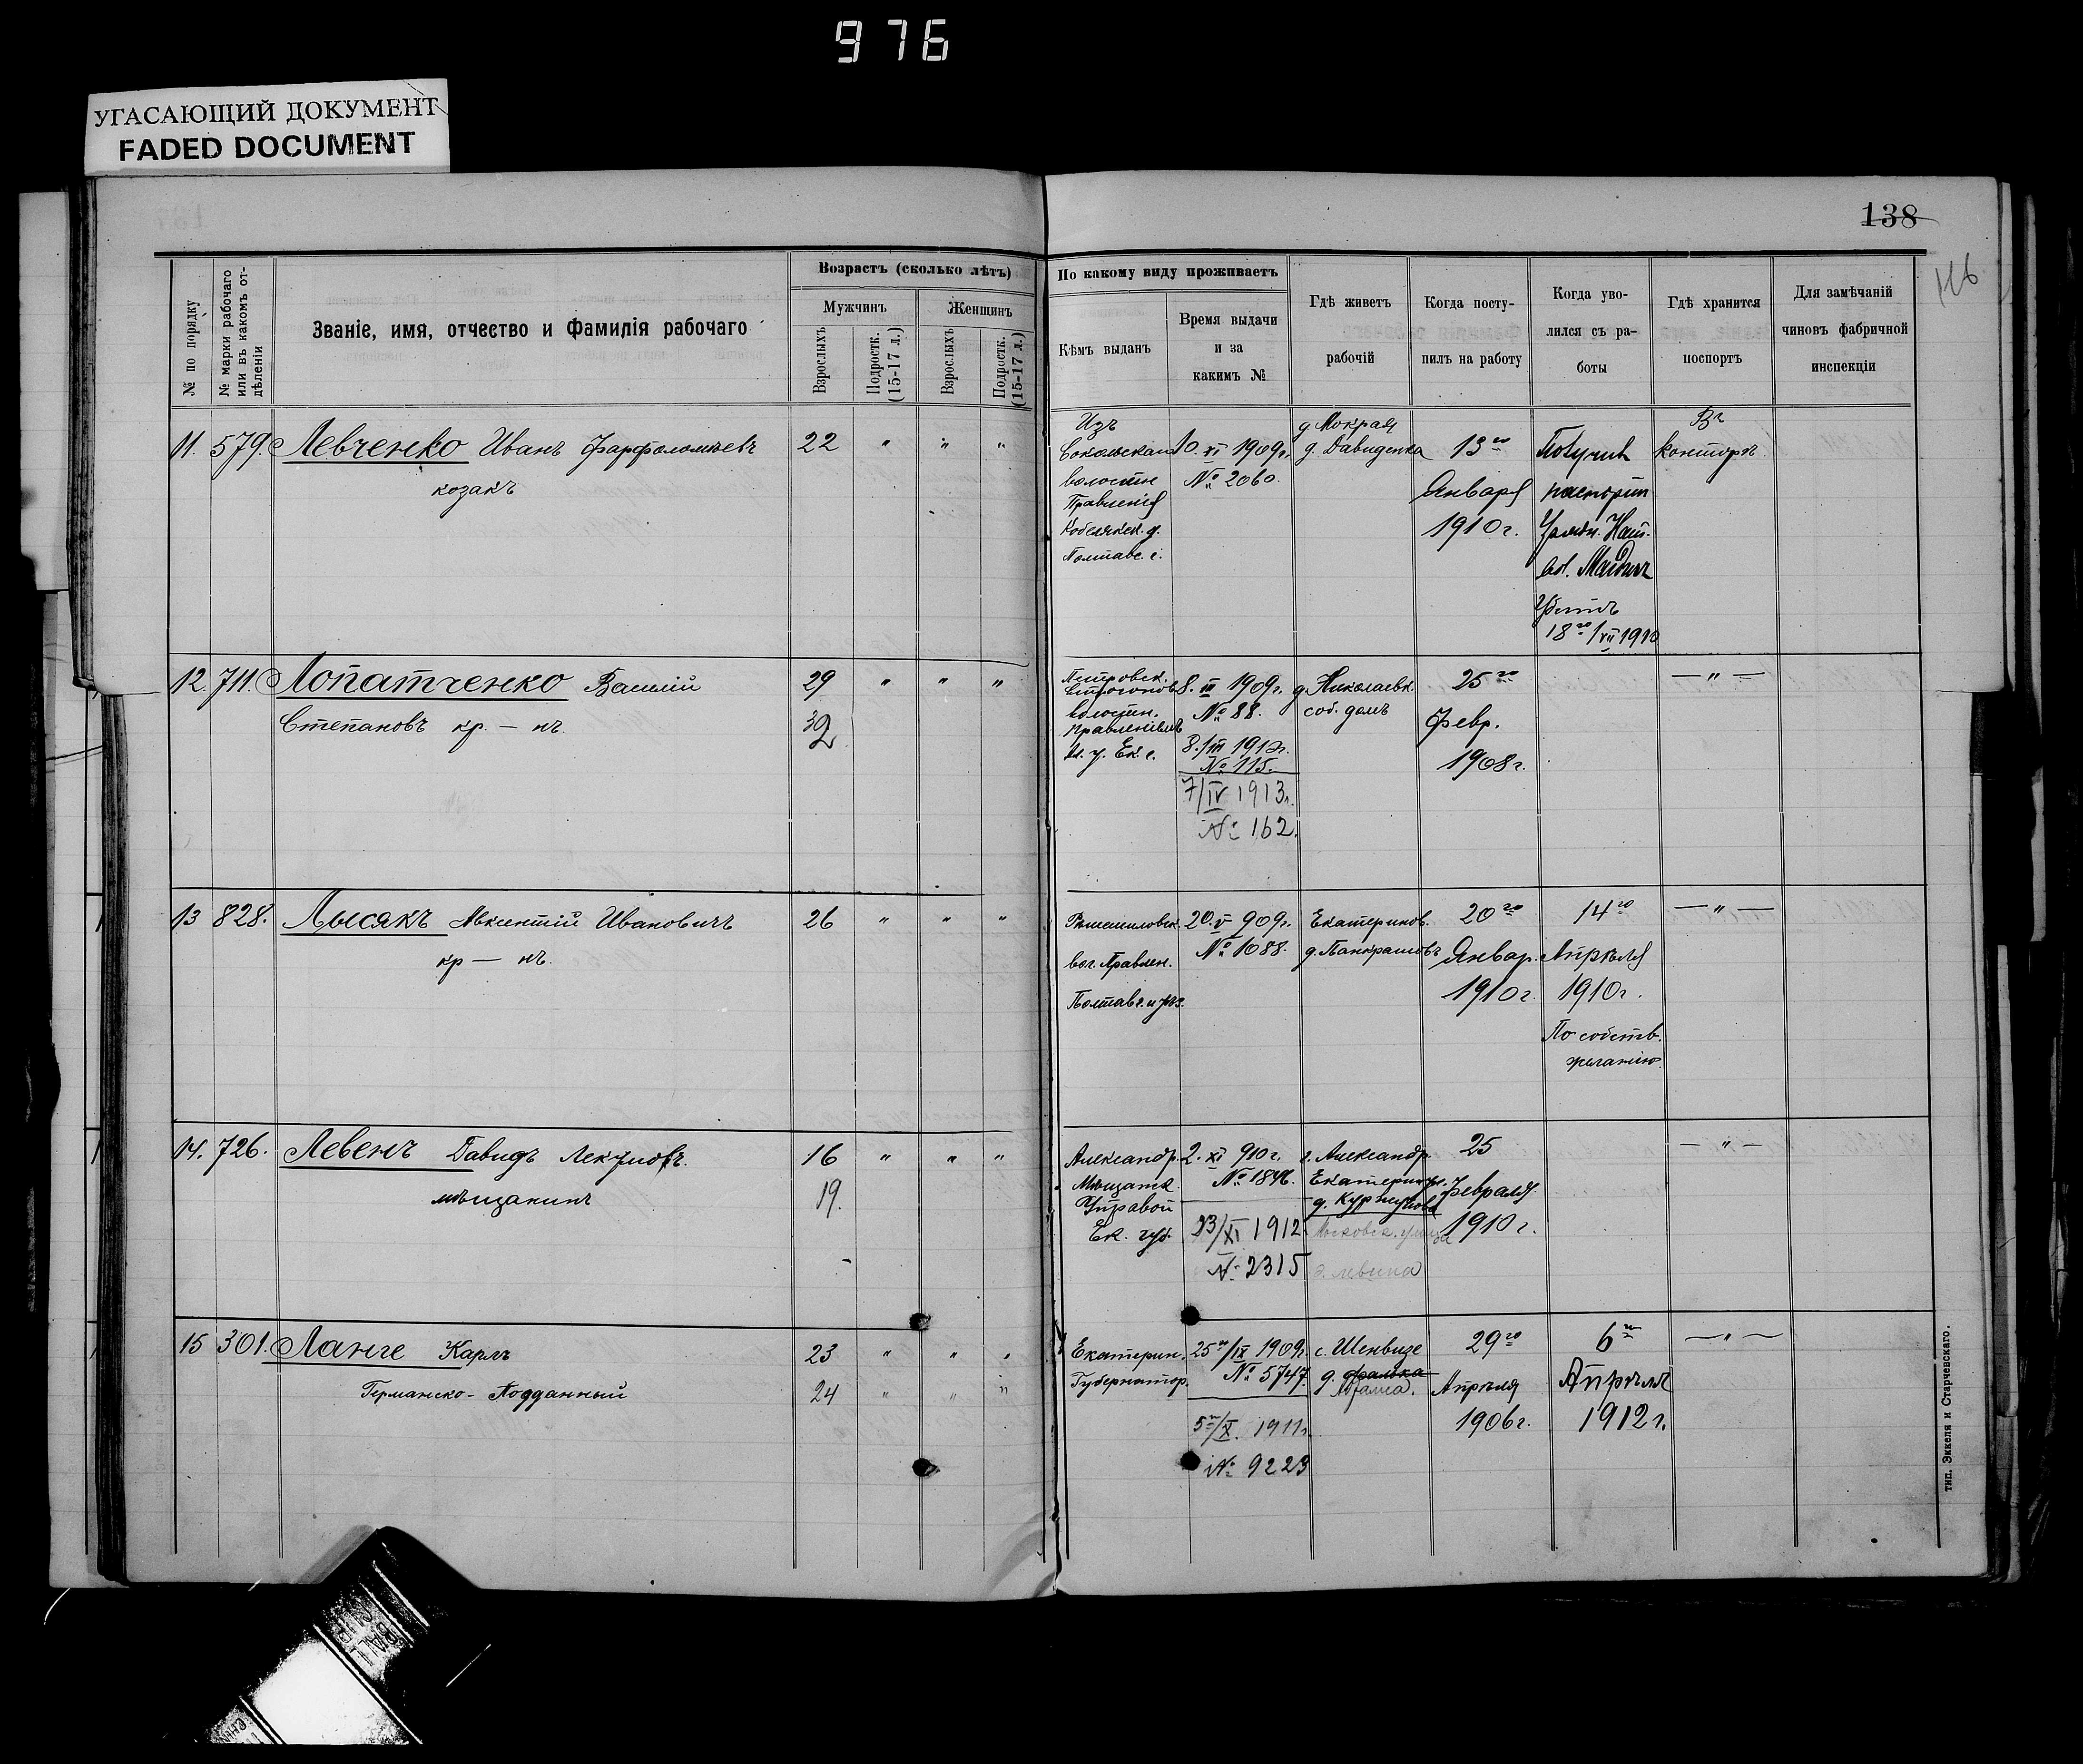 976
УГАСАЮЩИЙ ДОКУМЕНТ
FADED DOCUMENT
138
116
№ по порядку
№ марки рабочаго
или въ какомъ от-
дѣленіи
Званіе, имя, отчество и фамилія рабочаго
Возрастъ (сколько лѣтъ)
Мужчинъ
Женщинъ
Взрослыхъ
Подростк.
(15-17 л.)
Взрослыхъ
Подростк.
(15-17 л.)
По какому виду проживаетъ
Кѣмъ выданъ
Время выдачи
и за
какимъ №
Гдѣ живетъ
рабочій
Когда посту-
пилъ на работу
Когда уво-
лился съ ра-
боты
Гдѣ хранится
поспортъ
Для замѣчаній
чиновъ фабричной
инспекціи
11. 579. Левченко Иванъ Фарфоломѣевъ 22 " " "
козакъ
Изъ
волостн
Правленія
Кобелякск. у.
Полтавс. г.
10. XI 1909г.
№ 2060.
д. Мокрая
д. Давиденка
13го
Января
1910 г.
Получил
паспорт
18го/VII 1910
Въ
конторѣ
12. 711. Лопатченко Василій 29 " " "
Степановъ кр. — нъ. 32
Петровск.
волостн.
правленіемъ
у. Ек. г.
8. III 1909г.
№ 88.
8./III 1912г.
№ 115.
7/IV 1913г.
№ 162.
д. Николаевк.
соб. домъ
25го
Февр.
1908 г.
— " —
13 828. Лысякъ Авксентій Ивановичъ 26 " " "
кр — нъ.
вол. Правлен.
Полтав г. и уѣз.
20. V 909г.
№ 1088.
Екатеринов.
д. Панкратовъ
20го
Январ.
1910 г.
14го
Апрѣля
1910 г.
По собств.
желанію.
— " —
14. 726. Левенъ Давидъ 16 " " "
мѣщанинъ 19.
Александр.
Мѣщанск.
Управой
Ек. губ.
2. XI 910 г.
23/XI 1912
№ 2315
г. Александр.
Московск. улица
д. Левина
25
Февраля
1910 г.
— " —
15 301. Ланге Карлъ 23 " " "
Германско-Подданный 24 " " "
Екатерин.
Губернатор.
25го/IX 1909г.
№ 5747.
5го/X. 1911г.
№ 9223
с. Шенвизе
29го
Апрѣля
1906 г.
6го
Апрѣля
1912 г.
— " —
тип. Эккеля и Старчевскаго.